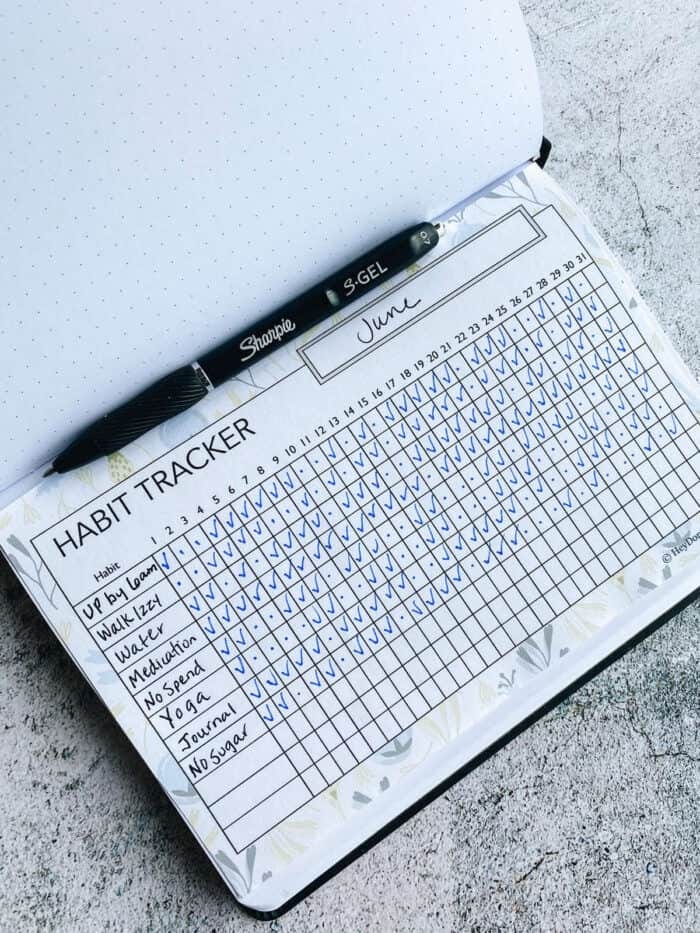 Sharpie S·GEL 0.7
June
HABIT TRACKER
Habit 1 2 3 4 5 6 7 8 9 10 11 12 13 14 15 16 17 18 19 20 21 22 23 24 25 26 27 28 29 30 31
Up by 6am
Walk Izzy
Water
Medication
No Spend
Yoga
Journal
No Sugar